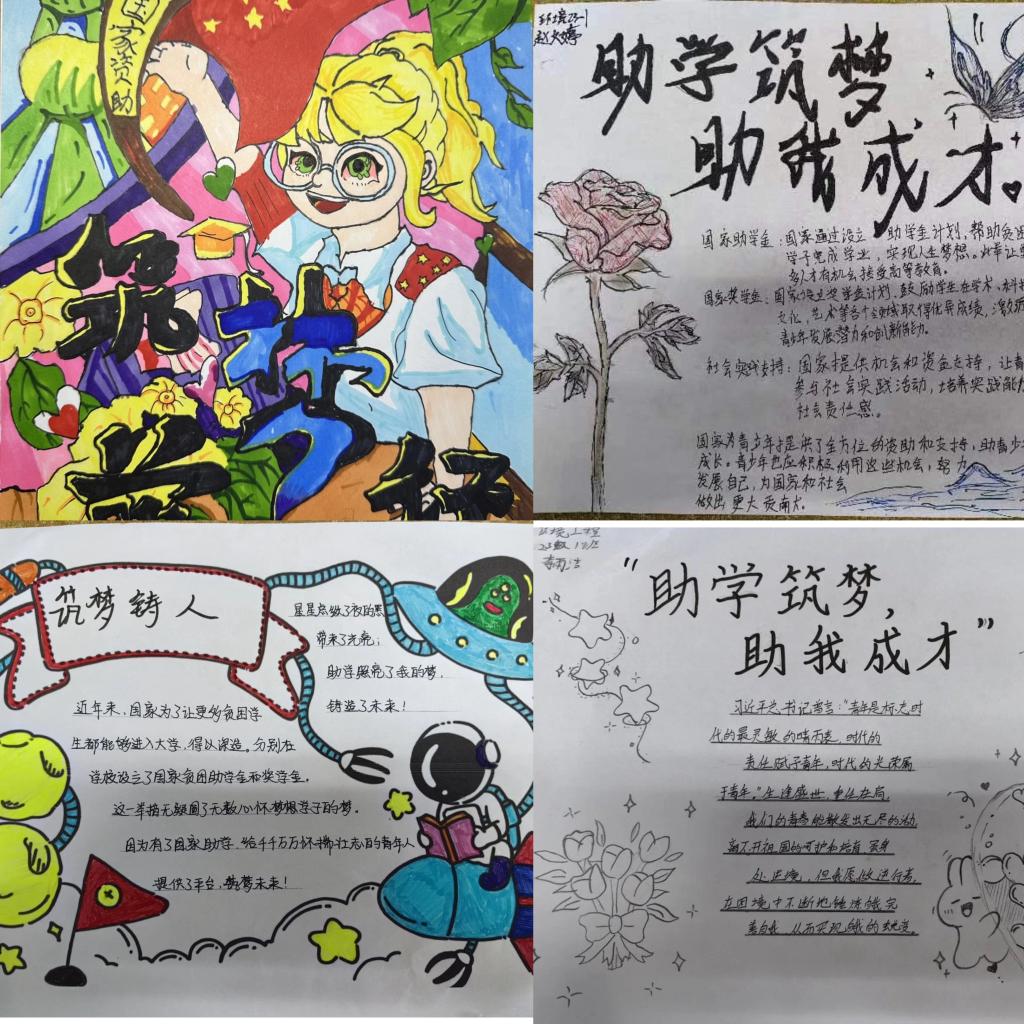 国家资助
筑梦
助学
铸
环境23-1
助学筑梦
助我成才
国家助学金：国家通过设立 助学金计划，帮助贫困
学子完成学业，实现人生梦想。此举让
多人才有机会接受高等教育。
国家奖学金：国家设立奖学金计划，鼓励学生在学术、
文化，艺术等各个领域取得优异成绩，激
青少年发展潜力和创新能力。
社会实践支持：国家提供机会和资金支持，让青
参与社会实践活动，培养实践能力
社会责任感。
国家为青少年提供了全方位的资助和支持，助青少
成长。青少年也应积极利用这些机会，努力
发展自己，为国家和社会
做出更大贡献。
筑梦铸人
星星点缀了夜的黑
带来了光亮；
助学照亮了我的梦，
铸造了未来！
近年来，国家为了让更多贫困学
生都能够进入大学，得以深造。分别在
学校设立了国家贫困助学金和奖学金。
这一举措无疑圆了无数心怀梦想学子的梦。
因为有了国家助学，给千千万万怀揣壮志的青年人
提供了平台，筑梦未来！
环境工程
"助学筑梦，
助我成才"
习近平总书记寄言："青年是标志时
代的最灵敏的晴雨表，时代的
责任赋予青年，时代的光荣属
于青年。"生逢盛世，重任在肩，
我们的青春能散发出无尽的活力，
离不开祖国的呵护和培育
处逆境，但我愿做逆行者，
在困境中不断地锤炼自我完
善自我，从而实现我的蜕变。